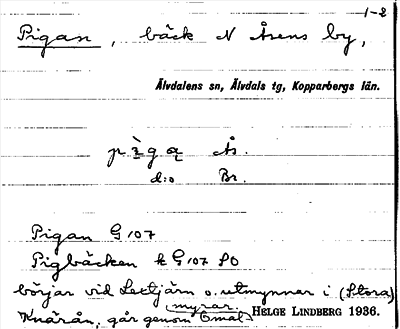 1-2
Pigan, bäck N Åsens by,
Älvdalens sn, Älvdals tg, Kopparbergs län.
Ås.
d:o Br.
Pigan G 107
Pigbäcken k G 107 SO
börjar vid Lertjärn o. utmynnar i (Stora)
Knärån, går genom små
myrar
HELGE LINDBERG 1936.